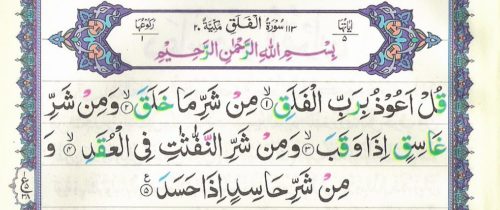 اٰیَاتُهَا ٥ ١١٣ سُوْرَةُ الْفَلَقِ مَكِّيَّةٌ ٢٠ رُكُوْعُهَا ١
بِسْمِ اللّٰهِ الرَّحْمٰنِ الرَّحِيْمِ
قُلْ اَعُوْذُ بِرَبِّ الْفَلَقِ ۙ﴿١﴾ مِنْ شَرِّ مَا خَلَقَ ۙ﴿٢﴾ وَمِنْ شَرِّ
غَاسِقٍ اِذَا وَقَبَ ۙ﴿٣﴾ وَمِنْ شَرِّ النَّفّٰثٰتِ فِى الْعُقَدِ ۙ﴿٤﴾ وَ
مِنْ شَرِّ حَاسِدٍ اِذَا حَسَدَ ﴿٥﴾